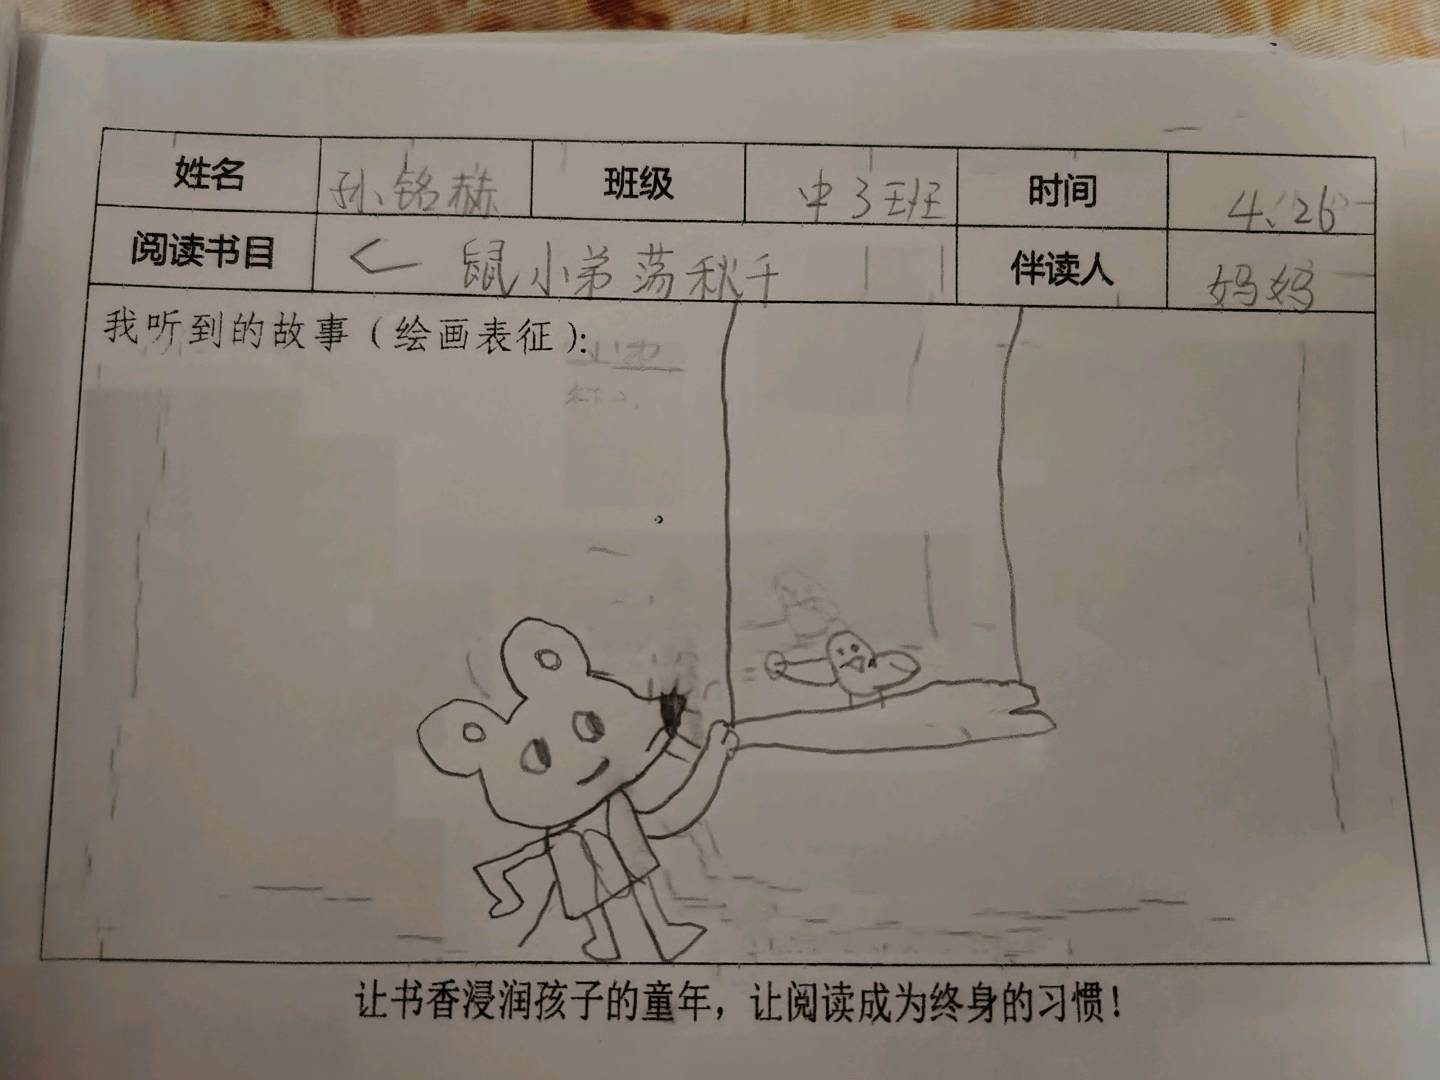 姓名 孙铭赫 班级 中3班 时间 4、26
阅读书目 < 鼠小弟荡秋千 伴读人 妈妈
我听到的故事(绘画表征):
让书香浸润孩子的童年,让阅读成为终身的习惯!